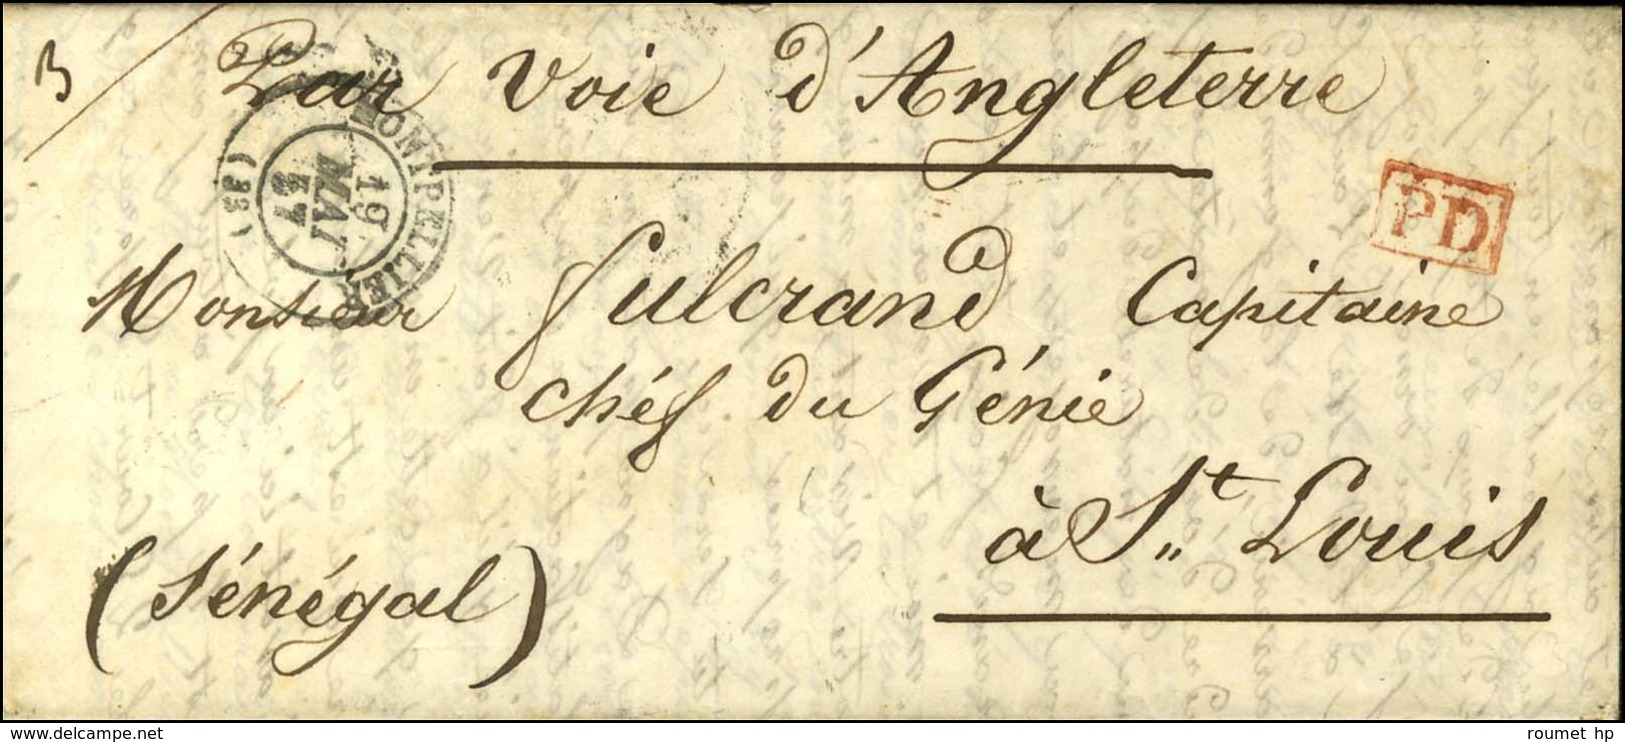 B/ Par voie d'Angleterre
MONTPELLIER
19
MAI
57
(33)
PD
Monsieur Fulcrand Capitaine
chéf du Génie
à St. Louis
(Sénégal)
roumet hp